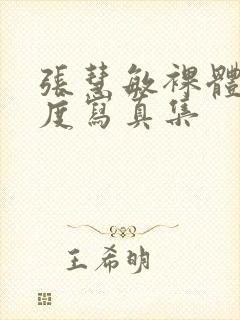 張慧敏裸體
度寫真集
王希明